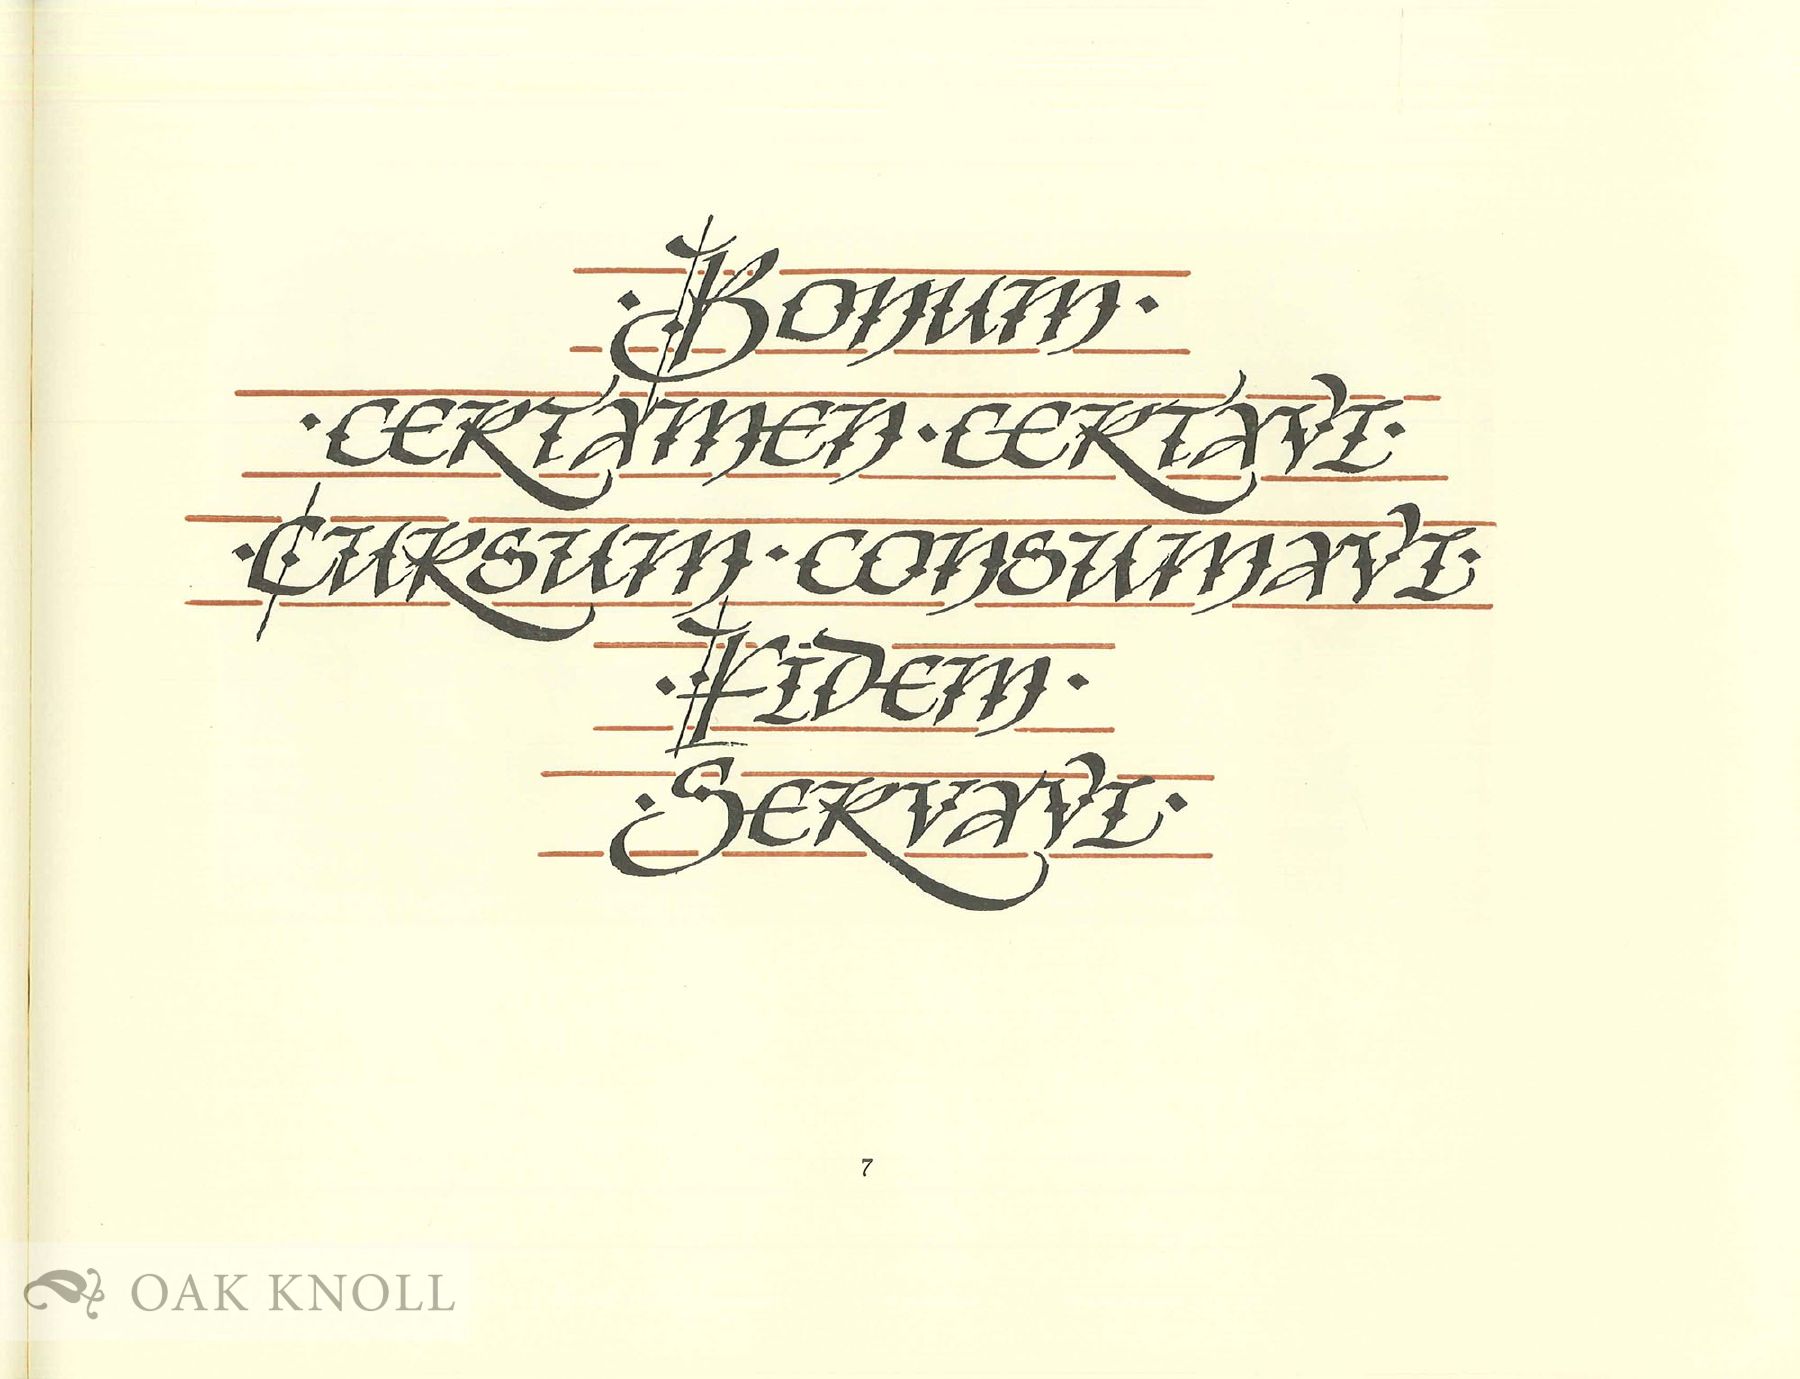 ·Bonum·
·CERTAMEN·CERTAVI·
·CURSUM·CONSUMAVI·
·FIDEM·
·SERVAVI·
7
OAK KNOLL